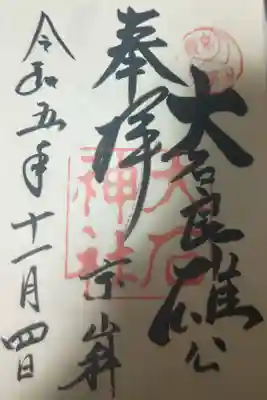 大石良雄公
奉拝
大石
神社
京山科
令和五年十一月四日